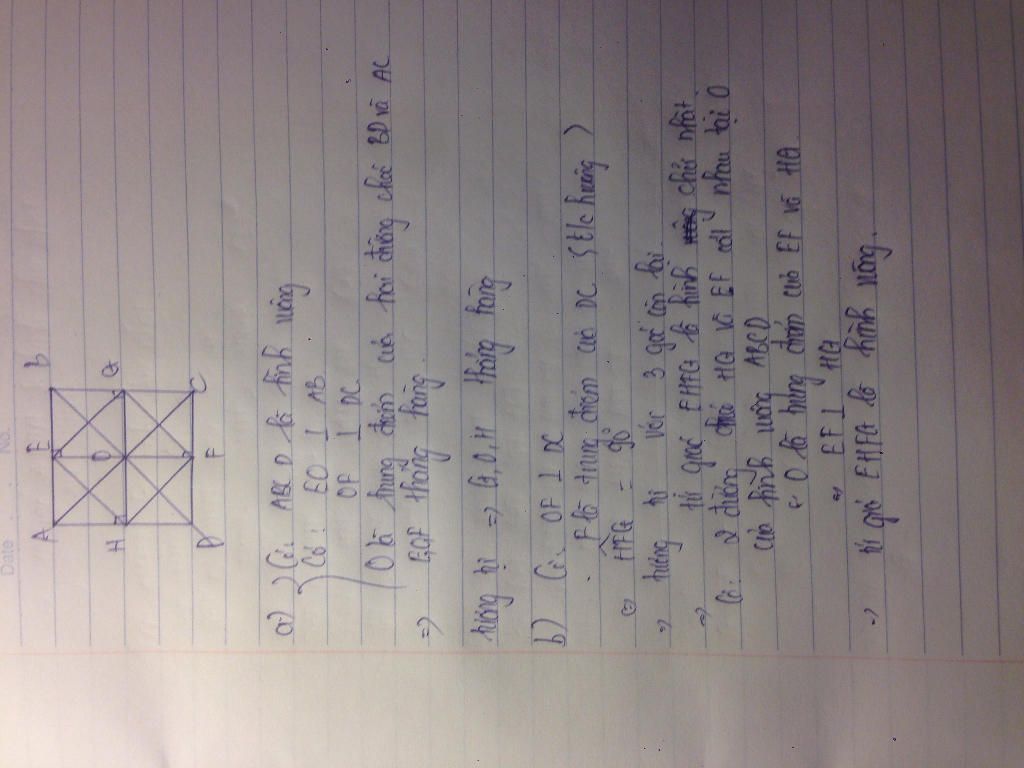 Date No.
A E B
H O G
D F C
a) Có: ABCD là hình vuông
Có: EO ⊥ AB
OF ⊥ DC
O là trung điểm của hai đường chéo BD và AC
=> E,O,F thẳng hàng
tương tự => G,O,H thẳng hàng
b) Có: OF ⊥ DC
F là trung điểm của DC (t/c hướng)
<=> HFG = 90°
=> tương tự với 3 góc còn lại.
=> tứ giác EHFG là hình chữ nhật
Có: 2 điểm chéo HG và EF cắt nhau tại O
của hình vuông ABCD
O là trung điểm của EF và HG
=> EF ⊥ HG
=> tứ giác EHFG là hình vuông.